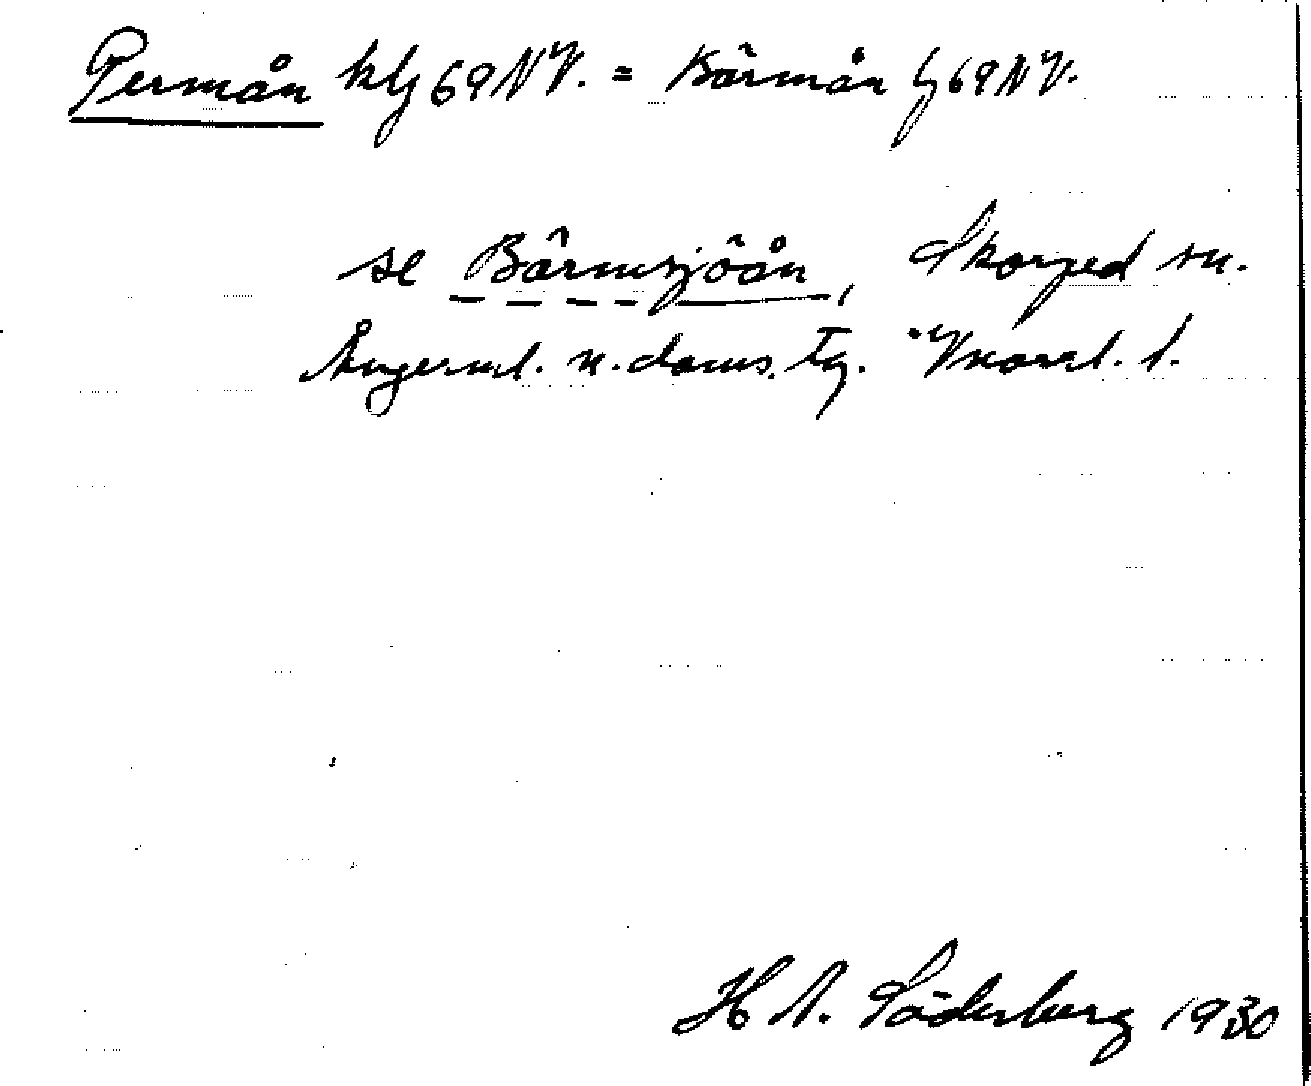 Permån klj 69 NV. = Bärmån lj 69 NV.
se Bärmsjöån, Skorped sn.
Ångerml. n. doms. tg. Vnorrl. l.
H A. Söderberg 1930